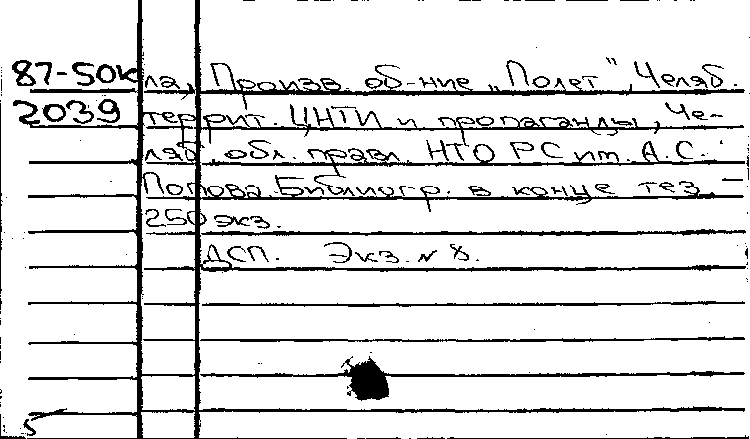 87-50к ла, Произв. об-ние „Полет", Челяб.
2039 террит. ЦНТИ и пропаганды, Че-
ляб. обл. правл. НТО РС им. А.С.
Попова. Библиогр. в конце тез. –
250 экз.
ДСП. Экз. № 8.
5